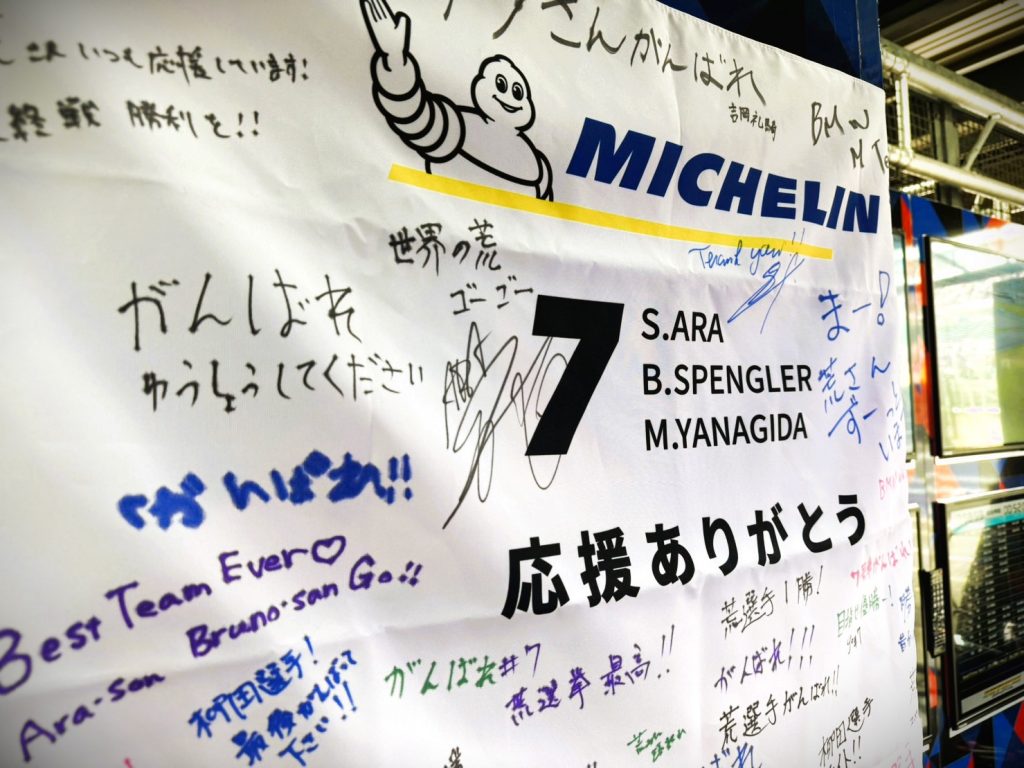 さんがんばれ
いつも応援しています!
最終戦 勝利を!!
BMW
M
MICHELIN
世界の荒
ゴーゴー
Thank you!!
がんばれ
ゆうしょうしてください
7
S.ARA
B.SPENGLER
M.YANAGIDA
まー!
荒さん
ずーっと
がんばれ!!
応援ありがとう
Best Team Ever♡
Ara-san Bruno-san Go!!
柳田選手!
最後がんばって
下さい!!
がんばれ#7
荒選挙最高!!
荒選手1勝!
がんばれ!!!
荒選手がんばれ!!
柳田選手